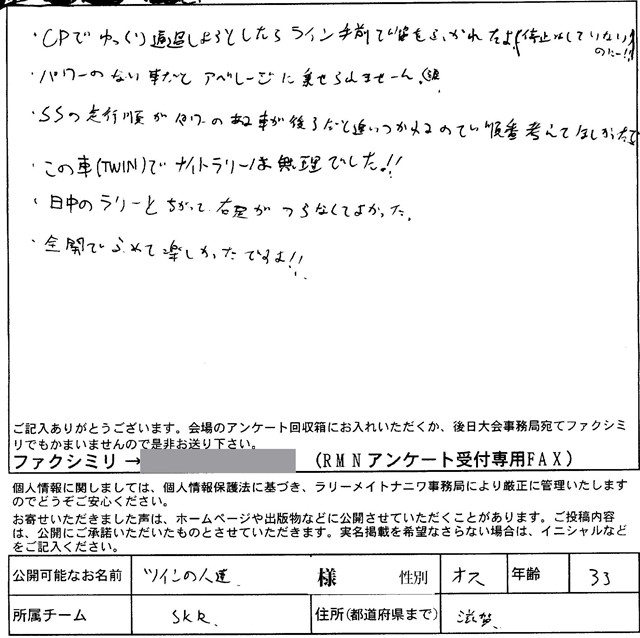 ・CPでゆっくり通過しようとしたらライン手前で笛をふかれたよ!(停止はしていない
のに!!
・パワーのない車だとアベレージに乗せられません。(涙
・SSの走行順がパワーのある車が後ろだと追いつかれるので順番考えてほしかったで
・この車(TWIN)でナイトラリーは無理でした!!
・日中のラリーとちがって右足がつらなくてよかった。
・全開でふれて楽しかったですよ!!
ご記入ありがとうございます。会場のアンケート回収箱にお入れいただくか、後日大会事務局宛てファクシミ
リでもかまいませんので是非お送り下さい。
ファクシミリ → (RMNアンケート受付専用FAX)
個人情報に関しましては、個人情報保護法に基づき、ラリーメイトナニワ事務局により厳正に管理いたします
のでどうぞご安心ください。
お寄せいただきました声は、ホームページや出版物などに公開させていただくことがあります。ご投稿内容
は、公開にご承諾いただいたものとさせていただきます。実名掲載を希望なさらない場合は、イニシャルなど
をご記入ください。
公開可能なお名前 ツインの人達 様 性別 オス 年齢 33
所属チーム SKR 住所(都道府県まで) 滋賀